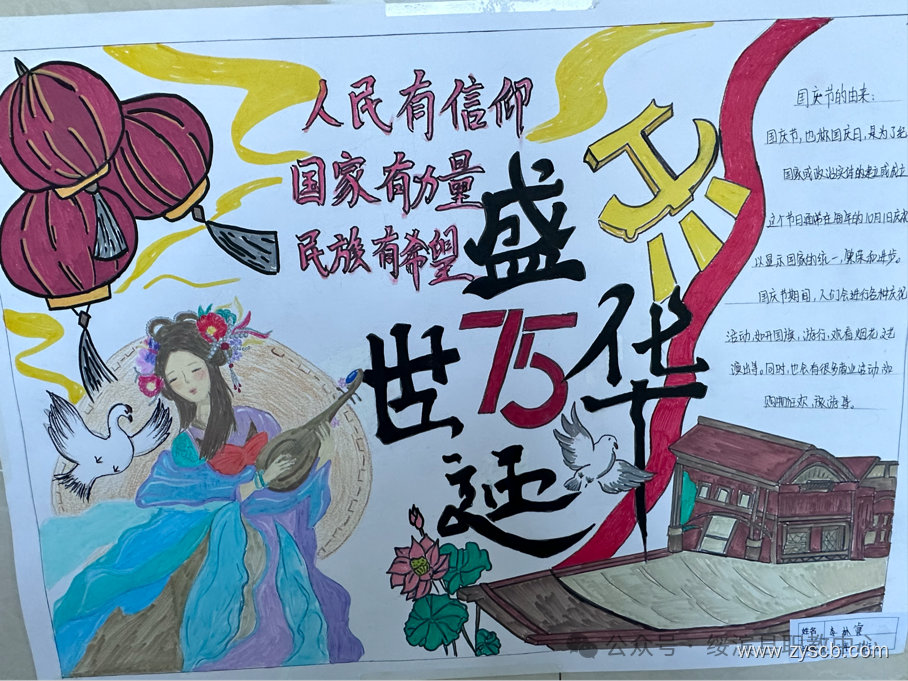 人民有信仰
国家有力量
民族有希望
盛
世
75
华
诞
国庆节的由来:
国庆节,也称国庆日,是为了纪
国家或政治实体的建立或成立
这个节日通常在每年的10月1日庆祝
以显示国家的统一、繁荣和进步。
国庆节期间,人们会进行各种庆祝
活动,如升国旗,游行,观看烟花,文艺
演出等。同时,也会有很多商业活动,如
购物狂欢,旅游等。
姓名
公众号·绥滨县职教中心
www.zyscbr.com